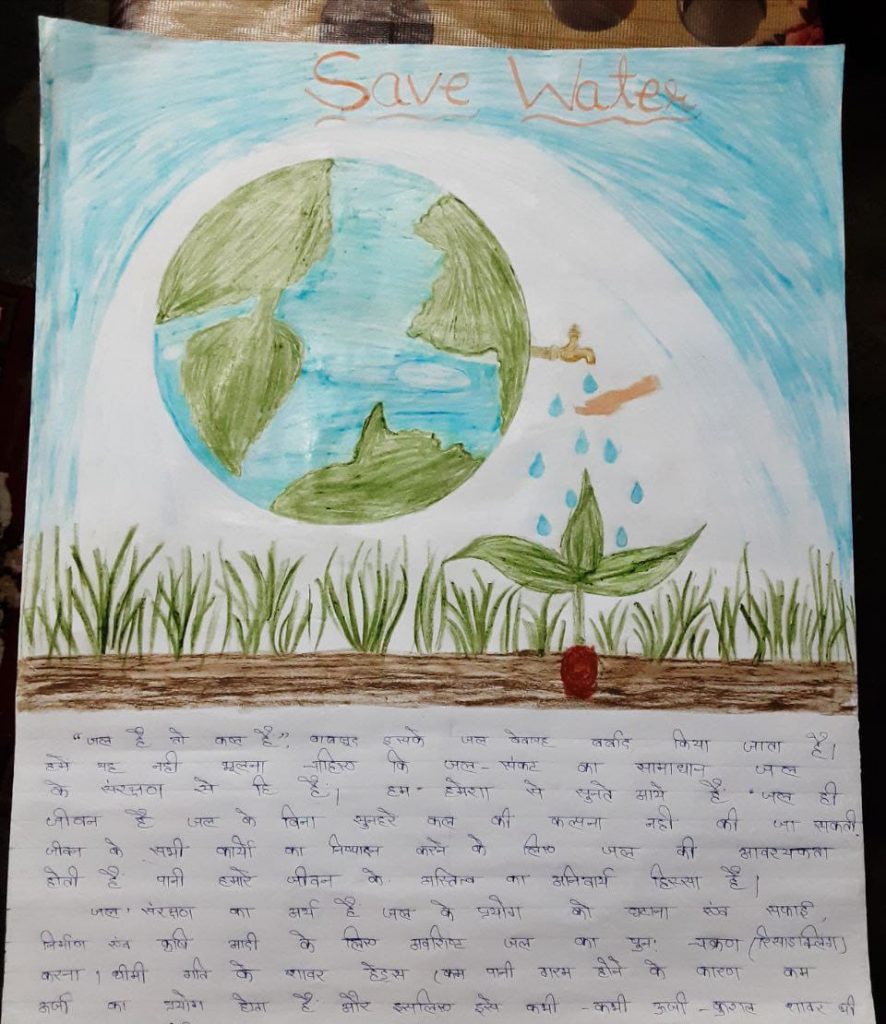 Save Water
"जल है तो कल है", बावजूद इसके जल बेवजह बर्बाद किया जाता है।
हमे यह नही भूलना चाहिए कि जल-संकट का सामाधान जल
के संरक्षण से हि है। हम हमेशा से सुनते आये है "जल ही
जीवन है जल के बिना सुनहरे कल की कल्पना नही की जा सकती,
जीवन के सभी कार्यो का निष्पादन करने के लिए जल की आवश्यकता
होती है पानी हमारे जीवन के अस्तित्व का अनिवार्य हिस्सा है।
जल संरक्षण का अर्थ है जल के प्रयोग को घटाना एंव सफाई,
निर्माण एंव कृषि आदी के लिए अवशिष्ट जल का पुन: चक्रण (रिसाइक्लिंग)
करना। धीमी गति के शावर हेड्स (कम पानी गरम होने के कारण कम
ऊर्जा का प्रयोग होता है और इसलिए इसे कभी-कभी ऊर्जा-कुशल शावर भी